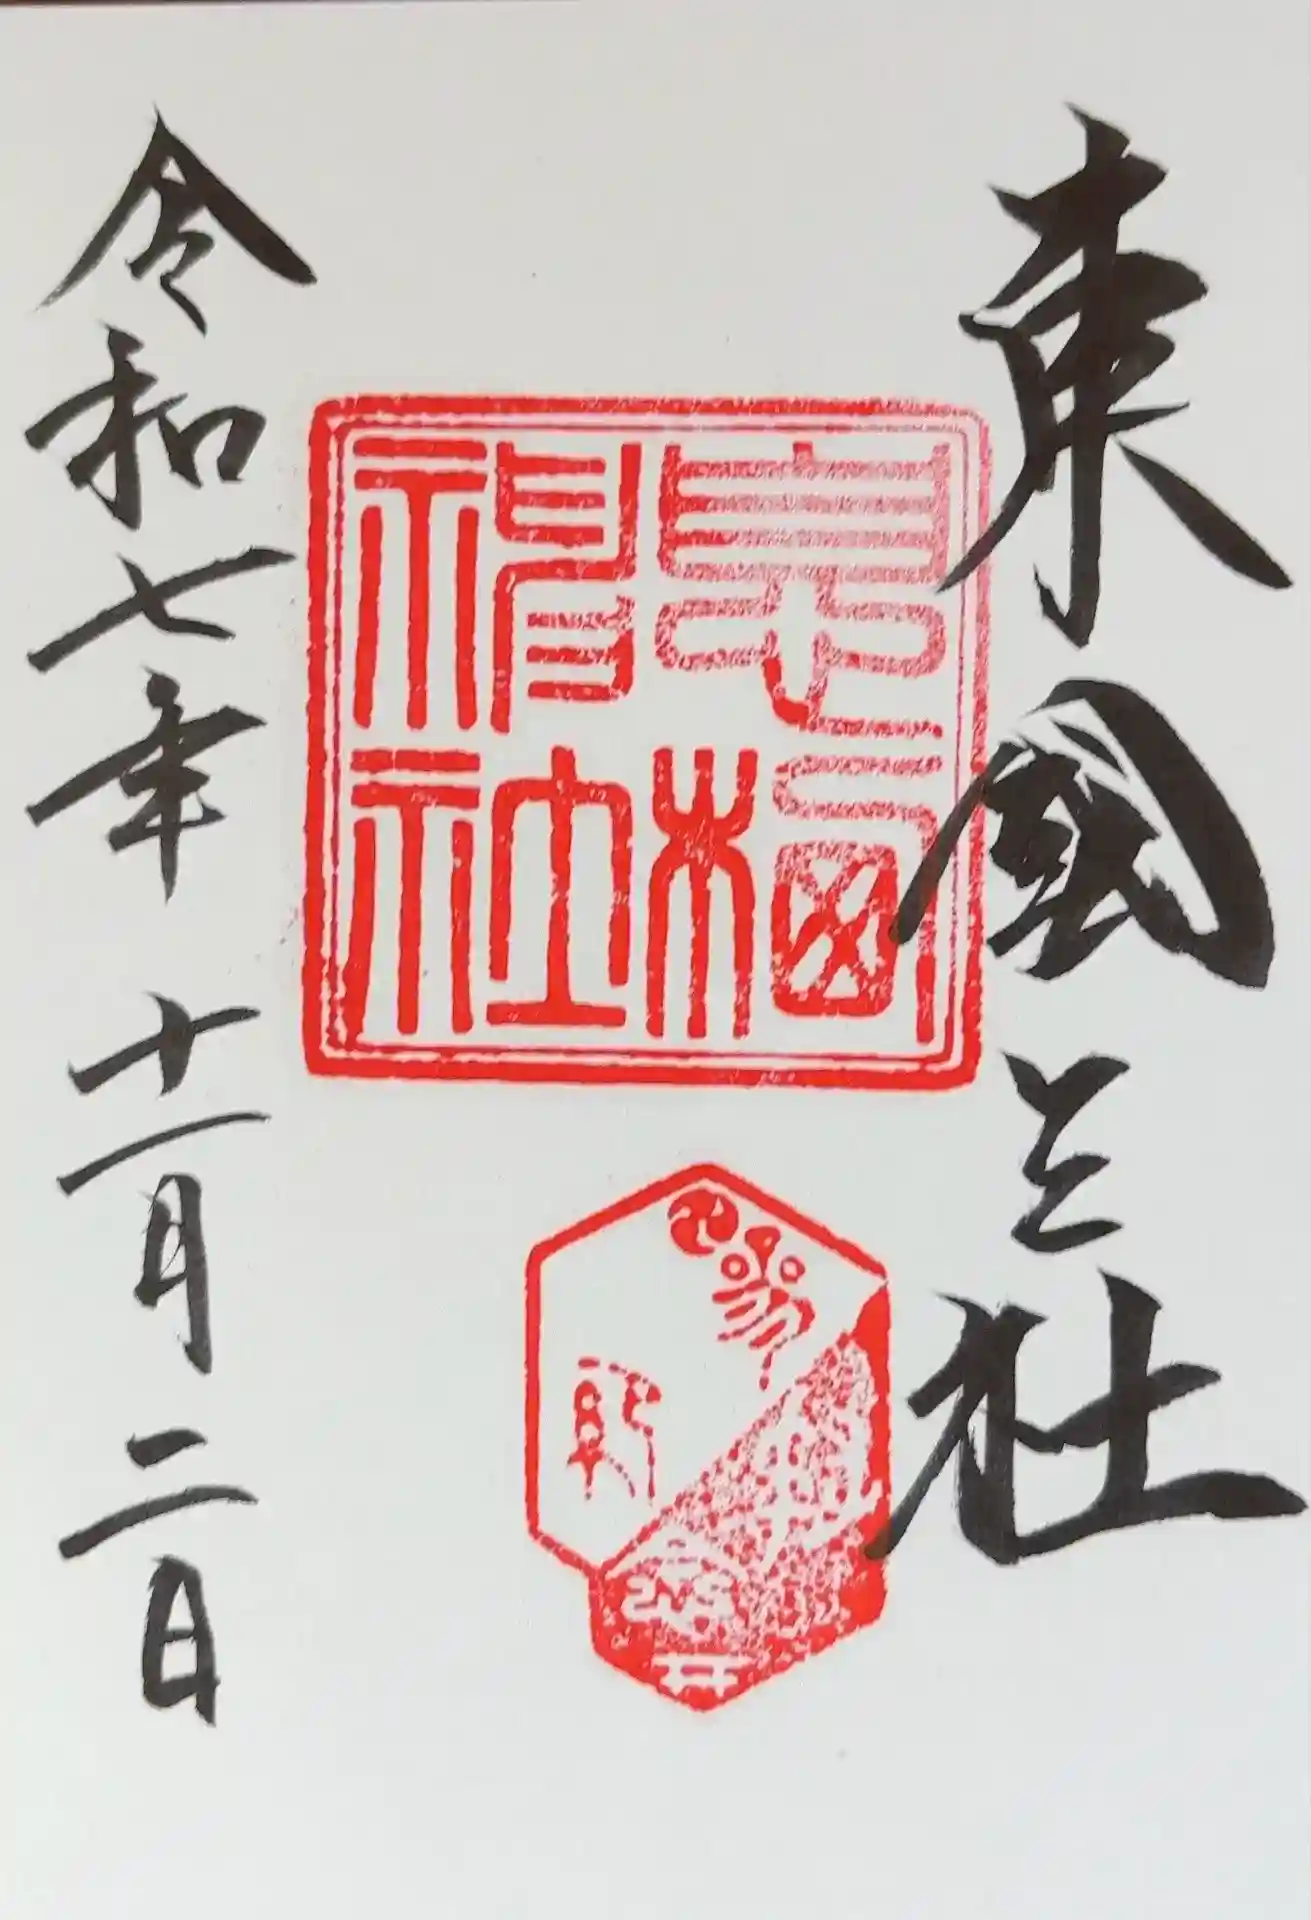 東國三社
息栖神社
令和七年十一月二日